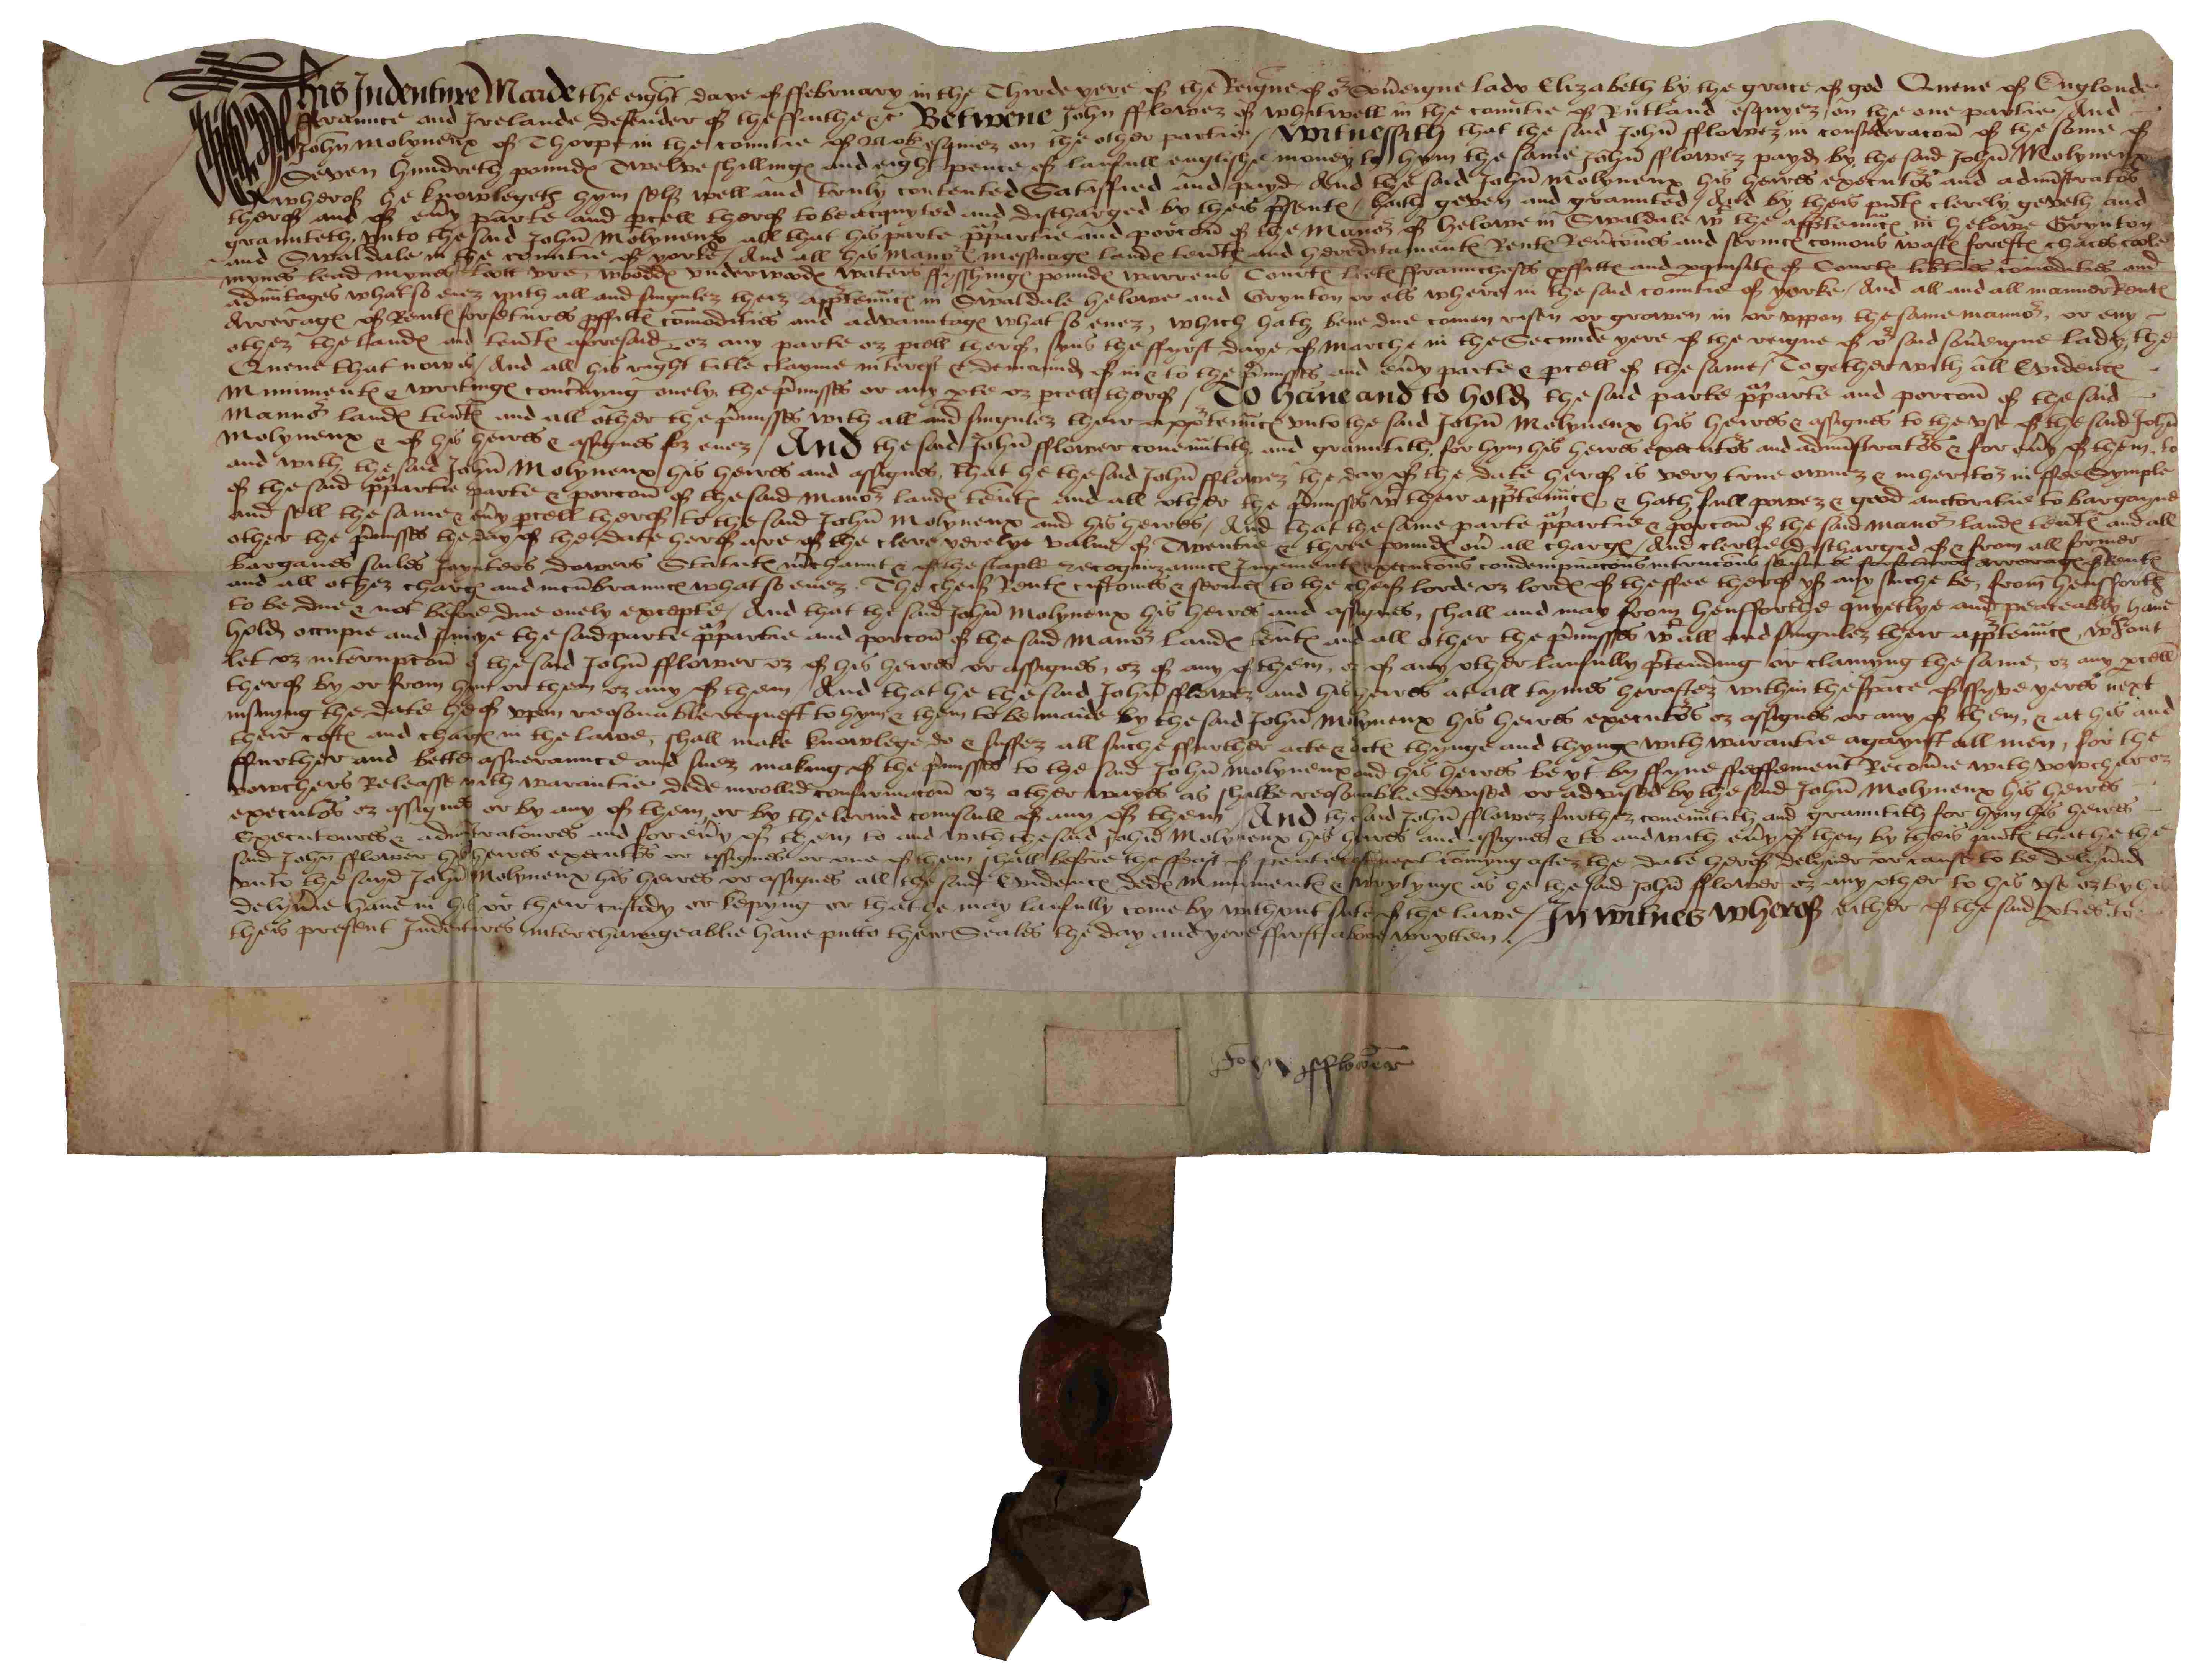 This Indenture Maide the eight daye of ffebruary in the Thirde yere of the Reigne of or Soūeigne lady Elizabeth by the grace of god Quene of Englonde
ffraunce and Irelande defender of the ffaithe &c Betwene John fflower of Whitwell in the countie of Rutland esquyer on the one partie / And
John Molyneux of Thorpe in the countie of esquier on the other partie / Witnessith that the said John fflower in consideracoñ of the some of
Seven hundreth poundꝭ Twelve shillingꝭ and eight pence of laufull englishe money to hym the same John fflower payd by the said John Molyneux
wherof he knowlegeth hym self well and truly contented Satisfied and payd And the said John Molyneux his heires executors and admistrators
therof and of eūy parte and pcell therof to be acquyted and discharged by theis psentꝭ / hath geven and graunted / And by theis pntꝭ clerely geveth and
graunteth vnto the said John Molyneux all that his parte pꝑartie and porcoñ of the Manor of helowe in Swaldale wt the apptenncꝭ in helowe Grynton
and Swaldale in the countie of yorke / And all his Manor Messuagꝭ landꝭ tentꝭ and hereditamentꝭ Rentꝭ Reūcōns and servicꝭ comons wastꝭ forestꝭ chaces coole
mynes lead mynes vre, woodꝭ vnderwoodꝭ waters ffysshingꝭ poundꝭ warrens Courtꝭ letꝭ ffrauncheses ꝓfittꝭ and ꝑquisitꝭ of Courtꝭ libties comodities and
advntages what so ever with all and singuler their apptenncꝭ in Swaldale helowe and Grynton or els where in the said countie of yorke / And all and all manner Rentꝭ
Arreragꝭ of Rentꝭ forfetures ꝓffittꝭ comodities and advauntagꝭ what so ever, which hath bene due comen risen or growen in or vppon the same mannor, or eny
other the landꝭ and tentꝭ aforesaid or any parte or pcell therof, syns the ffurst daye of Marche in the Seconde yere of the reigne of or said soūeigne lady the
Quene that now is / And all his right title clayme interest & demaund of in & to the pmisses and eūy parte & pcell of the same / Together with all Evidencꝭ
Munimentꝭ & writingꝭ conc̄nyng onely the pmisses or any pte or pcell therof / To haue and to hold the said parte pꝑarte and porcoñ of the said
Mannor landꝭ tentꝭ and all other the pmisses with all and singuler their apptenncꝭ vnto the said John Molyneux his heires & assignes to the vse of the said John
Molyneux & of his heires & assignes for euer / And the said John fflower couenntith and grauntith for hym his heires executors and admistrators & for eūy of them, to
and with the said John Molyneux his heires and assignes, that he the said John fflower the day of the date herof is very true owner & inheritor in ffee Symple
of the said pꝑartie parte & porcoñ of the said Manor landꝭ tentꝭ and all other the pmisses wt their apptenncꝭ & hath full power & good auctoritie to bargayne
and sell the same & eūy pcell therof to the said John Molyneux and his heires / And that the same parte pꝑartie & porcoñ of the said Manor landꝭ tentꝭ and all
other the pmisses the day of the date herof are of the clere yerelye value of Twentie & three poundꝭ oū all chargꝭ / And clerlie dyschargid of & from all former
barganes sailes Joynters dowers Statutꝭ m̄chaunt & of the staple recognizauncꝭ Jugementꝭ executons condempnacons intrucons forfetures arreragꝭ of Rentꝭ
and all other chargꝭ and incūbrauncꝭ what so euer. The cheif Rentꝭ customes & servicꝭ to the cheif lorde or lordꝭ of the ffee therof yf any suche be, from hensforth
to be due & not before due onely excepte / And that the said John Molyneux his heires and assignes, shall and may from hensforthe quyetlye and peaceably haue
hold occupie and enioye the said parte pꝑartie and porcoñ of the said Manor landꝭ tentꝭ and all other the pmisses wt all and singuler their apptenncꝭ wtout
let or interrupcoñ of the said John fflower or of his heires or assignes, or of any of them, or of any other laufully ptending or clamyng the same, or any pcell
therof by or from hym or them or any of them / And that he the said John fflower and his heires at all tymes herafter within the space of ffyve yeres next
insuyng the date herof vpon reasonable request to hym & them to be maide by the said John Molyneux his heires executors or assignes or any of them, & at his and
their costꝭ and chargꝭ in the lawe, shall make knowlege do & suffer all suche ffurther acte & actꝭ thynge and thyngꝭ with warantie agaynst all men, for the
ffurther and better assueraunce and suer making of the pmisses to the said John Molyneux and his heires be yt by ffyne ffeoffement Recoūie with vowcher or
vowchers Releasse with warantie dede inrolled confirmacoñ or other wayes as shalbe reasonablie devised or advised by the said John Molyneux his heires
executors or assignes or by any of them, or by the lernid counsaill of any of them / And the said John fflower further couenntith and grauntith for hym his heires
Executoures & admistratoures and for eūy of them to and with the said John Molyneux his heires and assignes & to and with eūy of them by theis pntꝭ that he the
said John fflower his heires executors or assignes or one of them shall before the ffeast of next comyng after the date herof delyuer or cause to be delyūed
vnto the sayd John Molyneux his heires or assignes all the said Evidencꝭ dedꝭ Munimentꝭ & wrytyngꝭ as he the said John fflower or any other to his vse or by his
delyūie haue in his or their custody or kepyng or that he may laufully come by without sute of the lawe / In witnes wherof either of the said pties to
theis present Indentures interchaungeablie haue putto their Seales the day and yere ffirst aboue wrytten /
John fflower